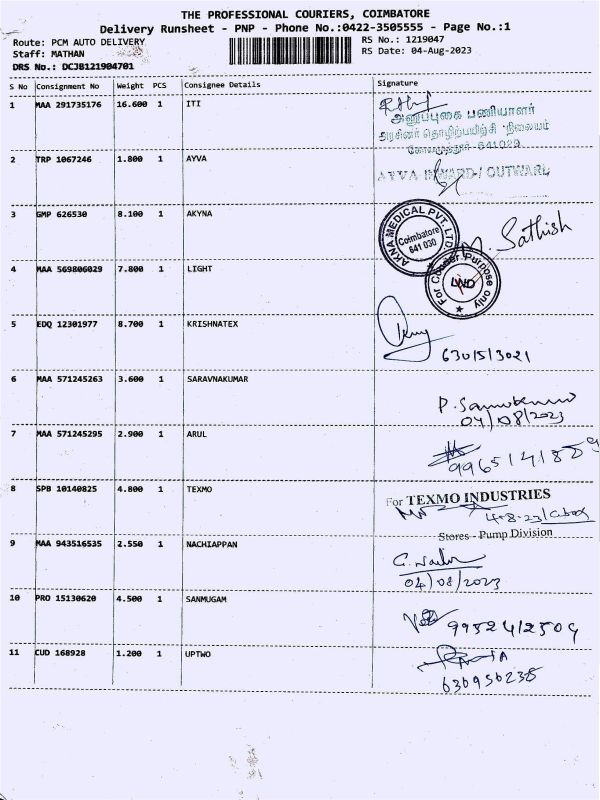 THE PROFESSIONAL COURIERS, COIMBATORE
Delivery Runsheet - PNP - Phone No.:0422-3505555 - Page No.:1
Route: PCM AUTO DELIVERY
RS No.: 1219047
Staff: MATHAN
RS Date: 04-Aug-2023
DRS No.: DCJB121904701
S No Consignment No Weight PCS Consignee Details Signature
1 MAA 291735176 16.600 1 ITI
அணுப்புகை பணியாளர்
அரசினர் தொழிற்பயிற்சி நிலையம்
கோயமுத்தூர்-641029
2 TRP 1067246 1.800 1 AYVA
AYVA INWARD / OUTWARD
3 GMP 626530 8.100 1 AKYNA
AKNA MEDICAL PVT. LTD.
Coimbatore
641 030
M. Sathish
4 MAA 569806029 7.800 1 LIGHT
For Courier Purpose only
LND
5 EDQ 12301977 8.700 1 KRISHNATEX
6301513021
6 MAA 571245263 3.600 1 SARAVNAKUMAR
04/08/2023
7 MAA 571245295 2.900 1 ARUL
8 SPB 10140825 4.800 1 TEXMO
For TEXMO INDUSTRIES
4-8-23
Stores - Pump Division
9 MAA 943516535 2.550 1 NACHIAPPAN
04/08/2023
10 PRO 15130620 4.500 1 SANMUGAM
9952412509
11 CUD 168928 1.200 1 UPTWO